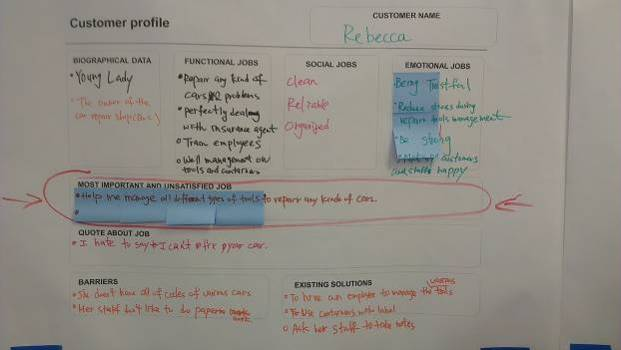 Customer profile
CUSTOMER NAME
Rebecca
BIOGRAPHICAL DATA
• Young Lady
• The owner of the
car repair shop
FUNCTIONAL JOBS
• Repair any kind of
cars problems
• perfectly dealing
with insurance agent
• Train employees
• Well management on
tools and customers
SOCIAL JOBS
Clean
Reliable
Organized
EMOTIONAL JOBS
• Being Trustful
• Reduce stress during
repair tools management
• Be strong
customers
happy
MOST IMPORTANT AND UNSATISFIED JOB
• Help me manage all different types of tools to repair any kinds of cars.
QUOTE ABOUT JOB
• I hate to say I can't fix your car.
BARRIERS
• She don't have all of codes of various cars
• Her staff don't like to do paper work
EXISTING SOLUTIONS
• To hire an employee to manage the various tools
• To use containers with label
• Ask her staff to take notes